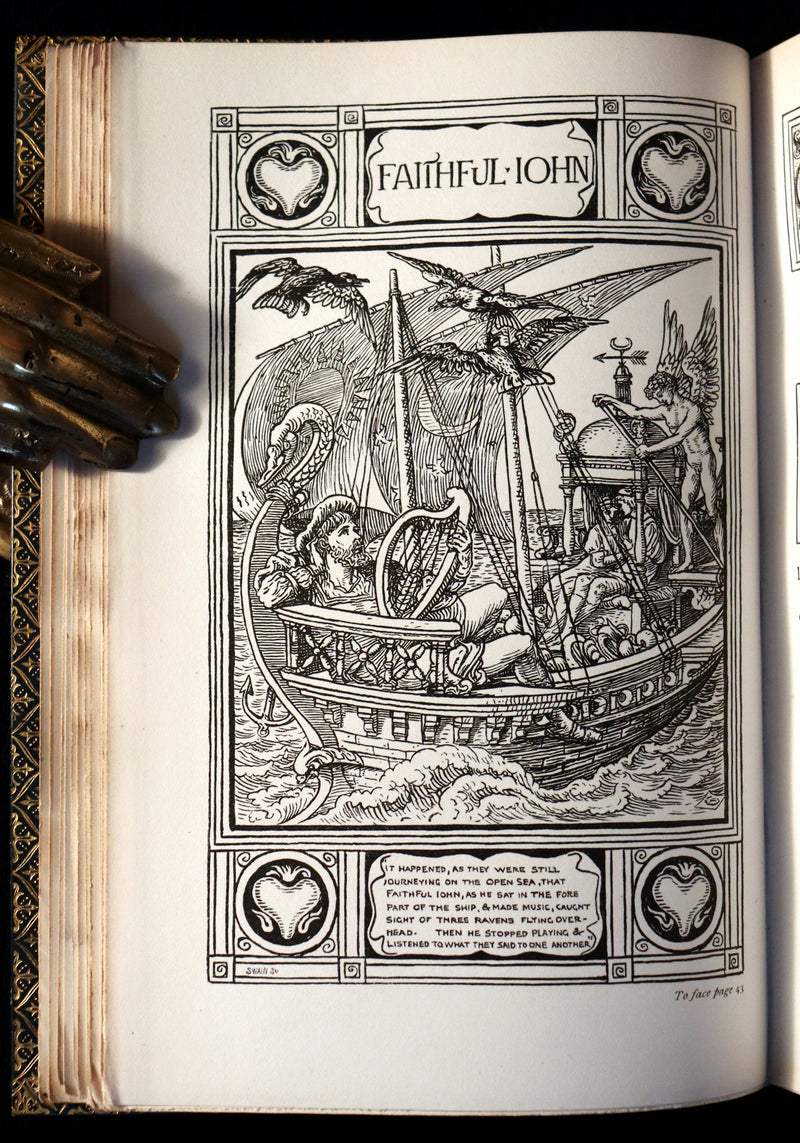 FAITHFUL·IOHN
IT HAPPENED, AS THEY WERE STILL
JOURNEYING ON THE OPEN SEA, THAT
FAITHFUL IOHN, AS HE SAT IN THE FORE
PART OF THE SHIP, & MADE MUSIC, CAUGHT
SIGHT OF THREE RAVENS FLYING OVER-
HEAD. THEN HE STOPPED PLAYING &
LISTENED TO WHAT THEY SAID TO ONE ANOTHER"
SWAIN SC
To face page 43